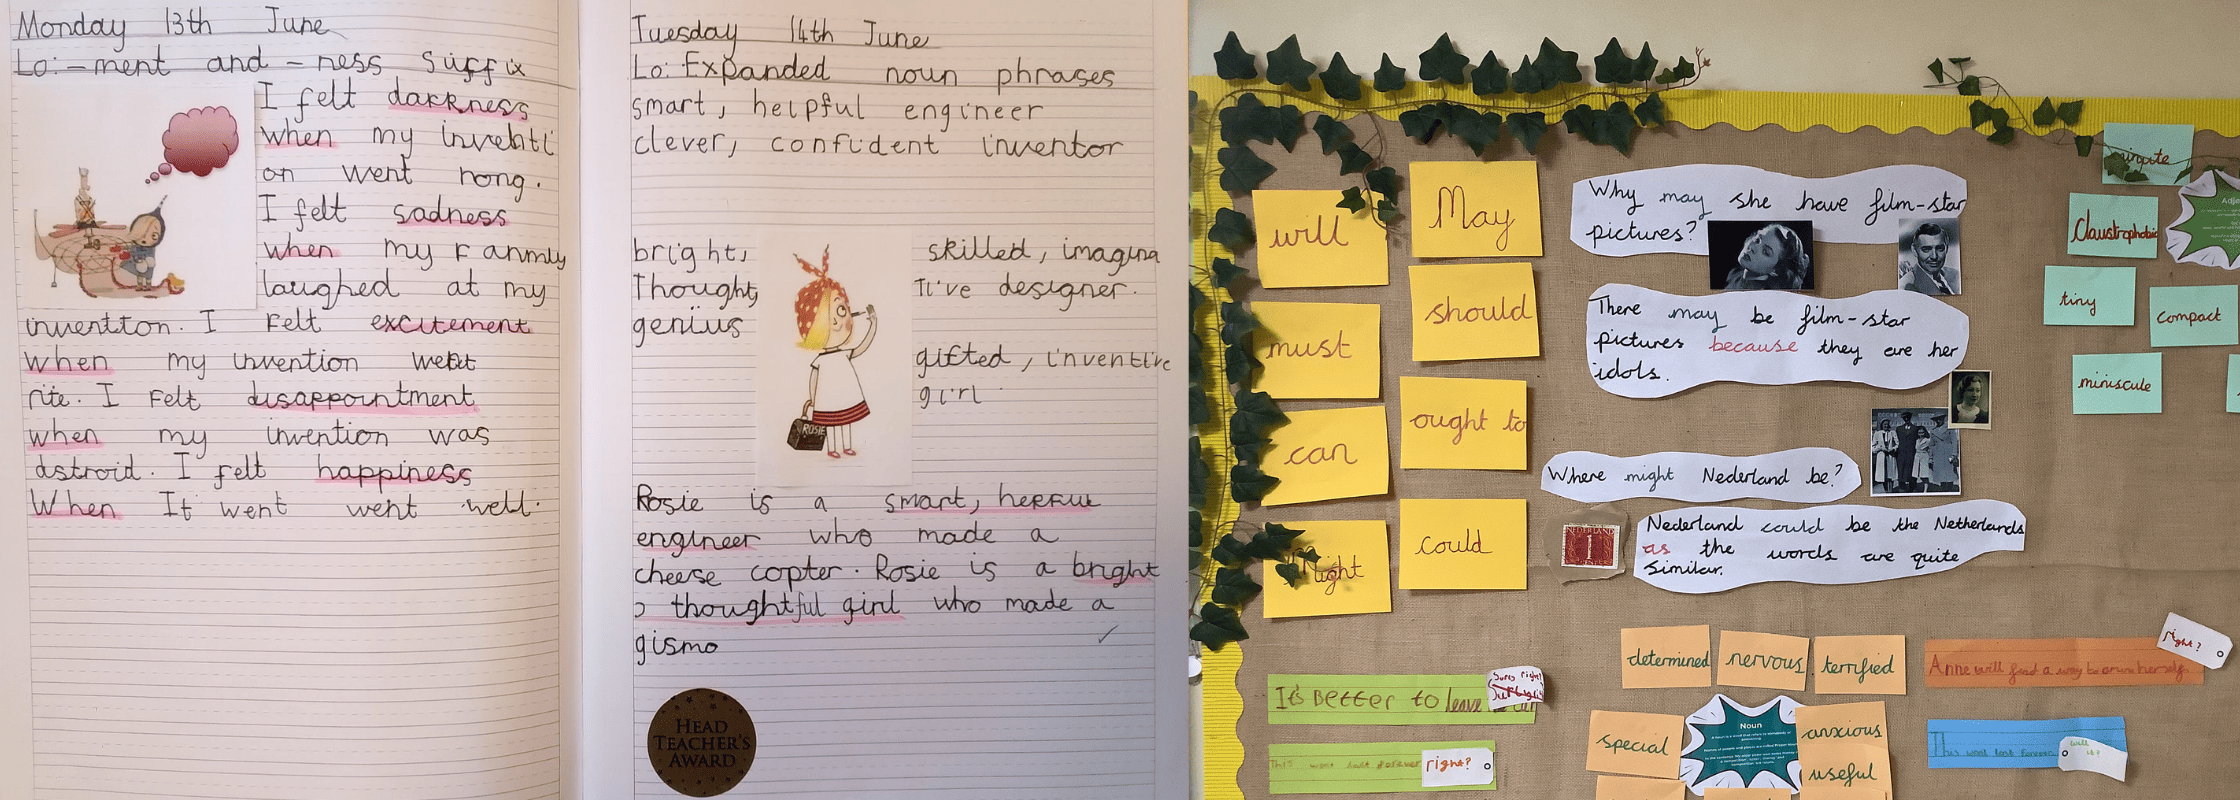 Monday 13th June
Lo: -ment and -ness suffix
I felt darkness
when my inventi
on went rong.
I felt sadness
when my Fanmly
laughed at my
invention. I Felt excitement
when my invention went
rite. I Felt disappointment
when my invention was
dstroid. I felt happiness
When It went went well.
Tuesday 14th June
Lo: Expanded noun phrases
smart, helpful engineer
clever, confident inventor
bright, skilled, imagina
Thought, tive designer.
genius
gifted, inventive
girl
ROSIE
Rosie is a smart, herFul
engineer who made a
cheese copter. Rosie is a bright
, thoughtful girl who made a
gismo
HEAD
TEACHER'S
AWARD
will
May
must
should
can
ought to
Might
could
Why may she have film-star
pictures?
There may be film-star
pictures because they are her
idols.
Where might Nederland be?
NEDERLAND
1
Nederland could be the Netherlands
as the words are quite
similar.
Claustrophobic
tiny
compact
miniscule
determined
nervous
terrified
special
Noun
anxious
useful
It's Better to leave
This wont last forever
right?
Anne will find a way to
right?
This wont last forever
will it?